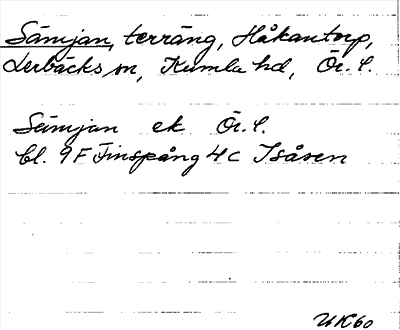 Sämjan, terräng, Håkantorp,
Lerbäcks sn, Kumla hd, Ör. l.
Sämjan ek Ör. l.
bl. 9F Finspång 4c Isåsen
UK60